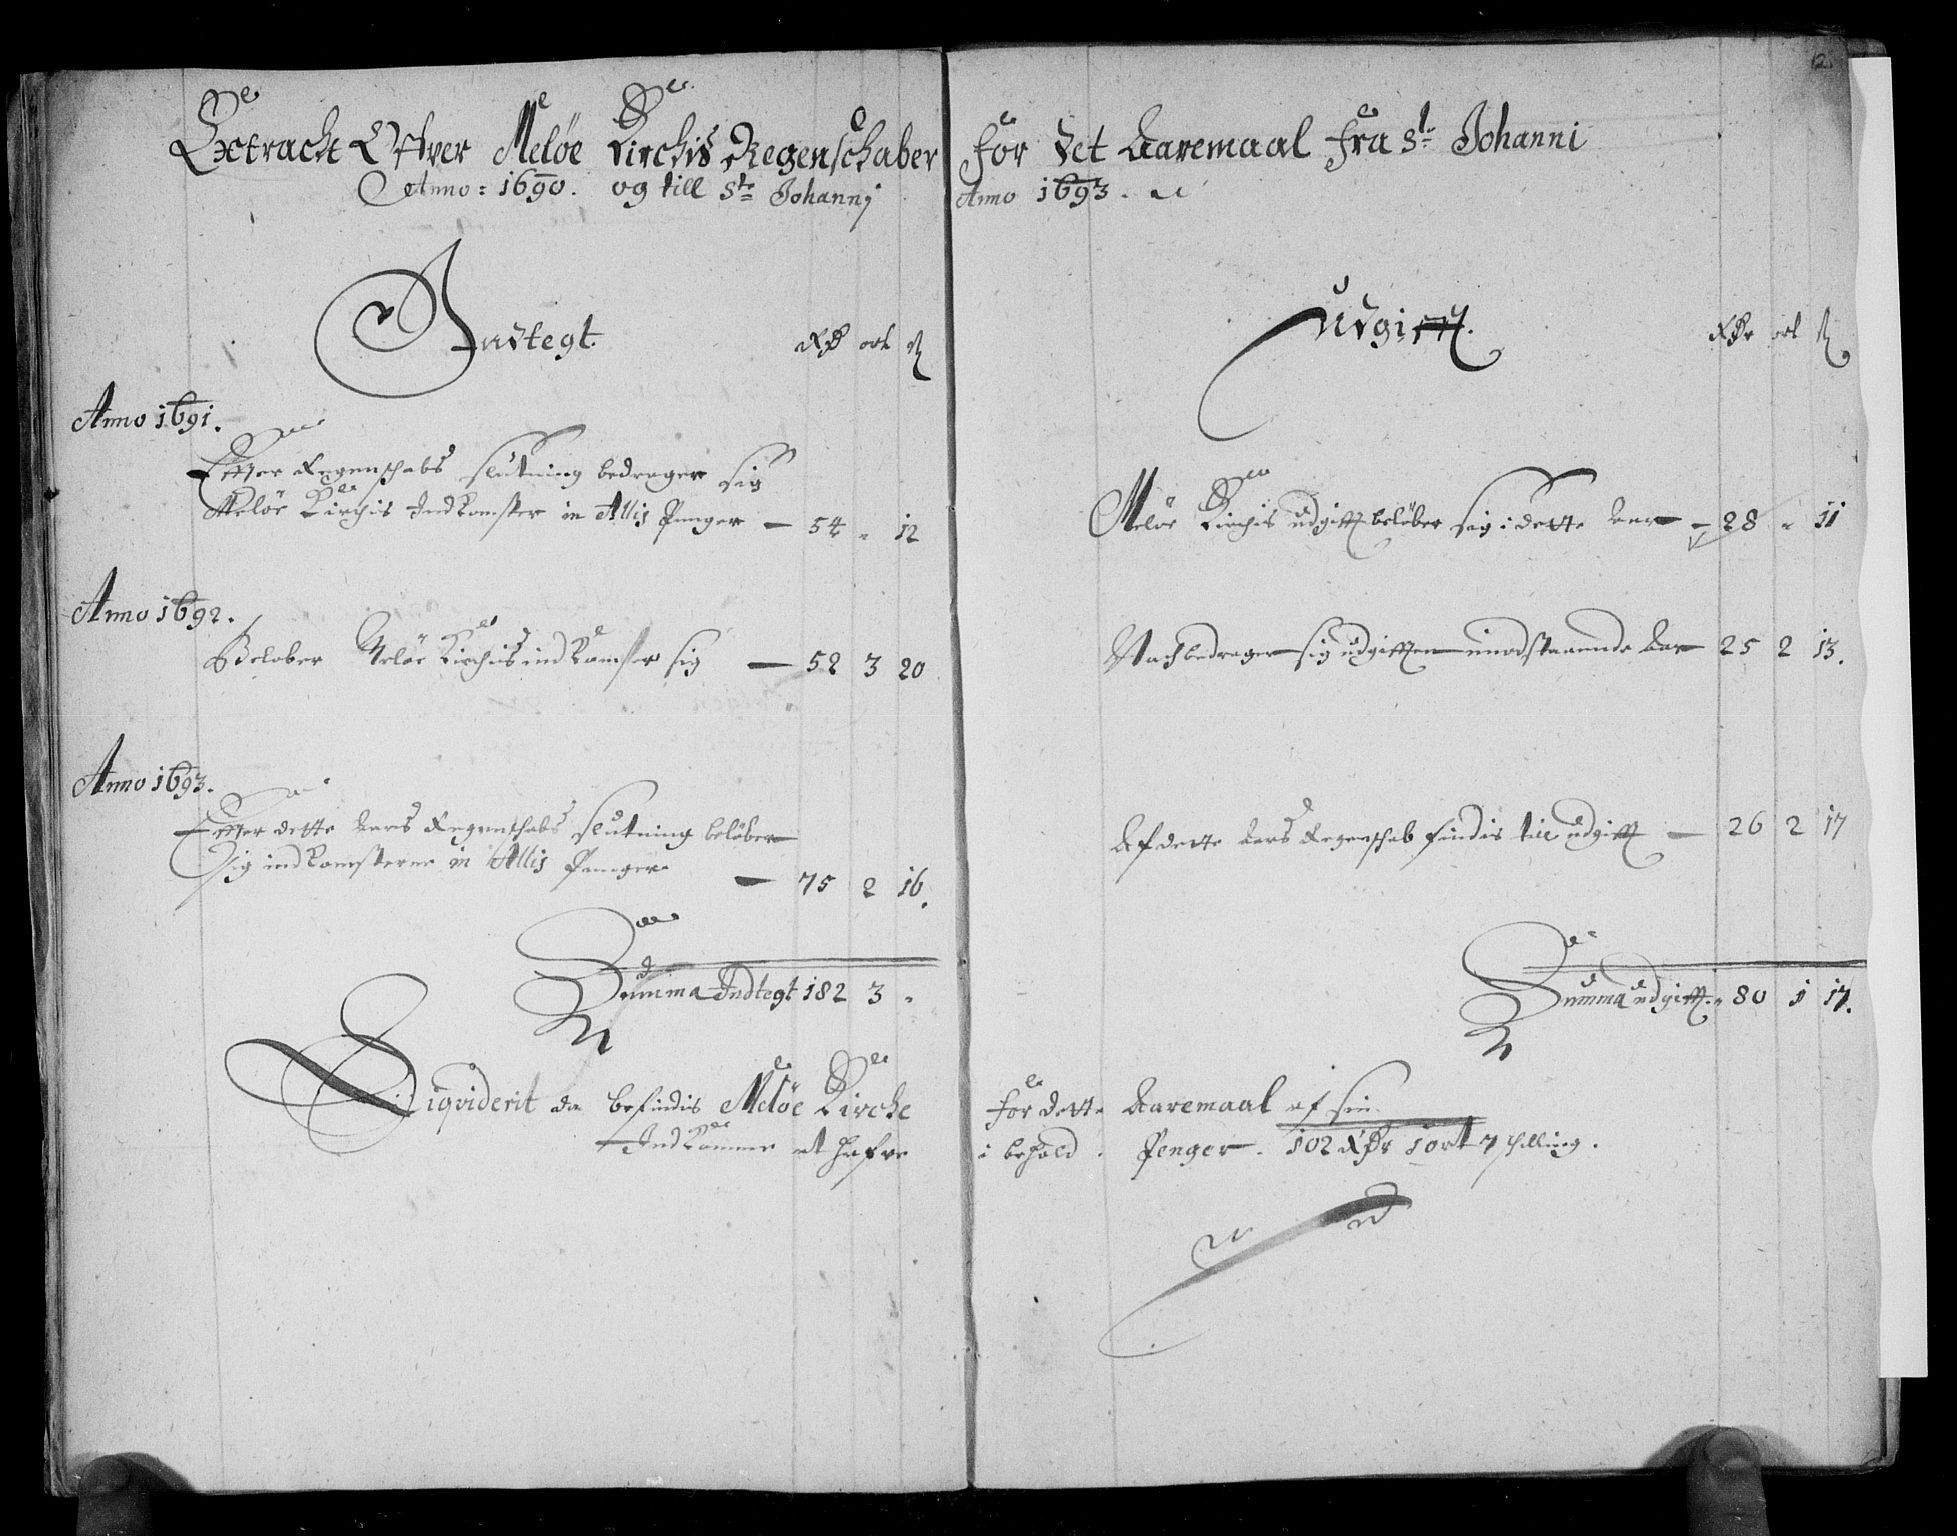 Extract Ofver Meløe Kirchis Regenschaber
Anno: 1690. og till Ste Johannj
Indtegt.
RDr ort ß
Anno 1691.
Efter Regenschabs slutning bedrager sig
Meløe Kirchis Indkomster in Allis Penger — 54 " 12
Anno 1692.
Beløber Meløe Kirchis indkomster sig — 52 3 20
Anno 1693.
Efter dette Aars Regenschabs slutning beløber
sig indkomsterne in Allis Penger — 75 2 16.
Summa Indtegt 182 3 "
Liqviderit da befindis Meløe Kirche
Indkomme at hafve
2.
For det Aaremaal fra Ste Johanni
Anno 1693.
Udgifft.
RDr ort ß
Meløe Kirchis udgifft beløber sig i dette Aar — 28 " 11
Nach bedrager sig udgifften imodstaaende Aar 25 2 13.
Af dette Aars Regenschab findis till udgifft — 26 2 17
Summa udgifft. 80 1 17.
for dette Aaremaal af sin
i behold. Penger. 102 RDr 1 ort 7 skilling.